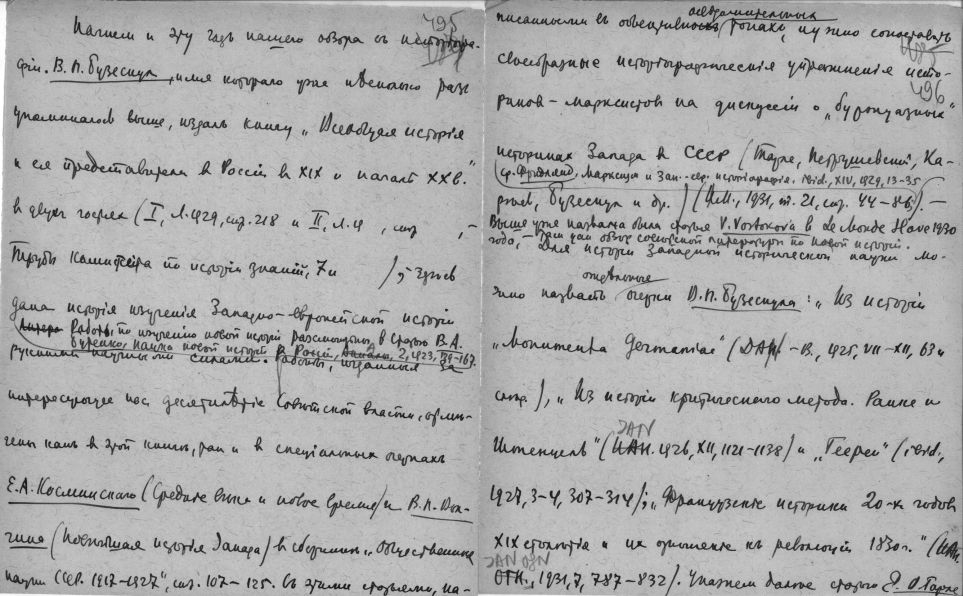 495
Начнем и эту годъ нашего обзора съ историогра-
фiи. В. П. Бузескул, имя котораго уже несколько разъ
упоминалось выше, издалъ книгу „Всеобщая исторiя
и ея представители в Россiи в XIX и началѣ XX в."
в двухъ частях (I, Л. 1929, стр. 218 и II, Л.
Труды Комиссiи по исторiи знанiй, 7 и ); здѣсь
дана исторiя изученiя Западно-европейской исторiи
Работы по изученiю новой исторiи разсмотрены в статье В. А.
Бутенко, наука новой исторiи в Россiи, Анналы, 2, 1923, 129-167.
русскими научными силами. Работы, изданныя за
интересующее нас десятилѣтiе Советской власти, отмѣ-
чены какъ в этой книгѣ, так и в спецiальных очерках
Е. А. Косминскаго (Средние века и новое время) и В. П. Вол-
гина (Новейшая исторiя Запада) в сборнике „Общественные
науки СССР. 1917-1927", стр. 107-125. Съ этими статьями, на-
писанными въ тонах, нужно сопоставить
496
своеобразные исторiографическiя упражненiя исто-
риков-марксистов на дискуссiи о „буржуазных"
историках Запада в СССР (Тарле, Петрушевский, Ка-
ср. Фридлянд, Марксизм и Зап.-евр. исторiографiя. ibid., XIV, 1929, 13-35
рѣев, Бузескул и др.) (И.М., 1931, т. 21, стр. 44-86). —
Выше уже названа была статья V. Vostokova в Le Monde Slave 1930
года, — там дан обзор советской литературы по новой исторiи.
Для исторiи Западной исторической науки мо-
отдѣльные
жно назвать очерки В. П. Бузескула: „Из исторiи
„Monumenta Germaniae" (ДАН-В, 1925, VII-XII, 63 и
слѣд.), „Из исторiи критическаго метода. Ранке и
ИАН
Штенцель" (ИАН. 1926, XII, 1121-1138) и „Геерен" (ibid.,
1927, 3-4, 307-314); „Французскiе историки 20-х годов
XIX столѣтiя и их отношенiе къ революцiи 1830 г." (ИАН.
ОГН., 1931, 7, 787-832). Укажем далее статью Е. В. Тарле